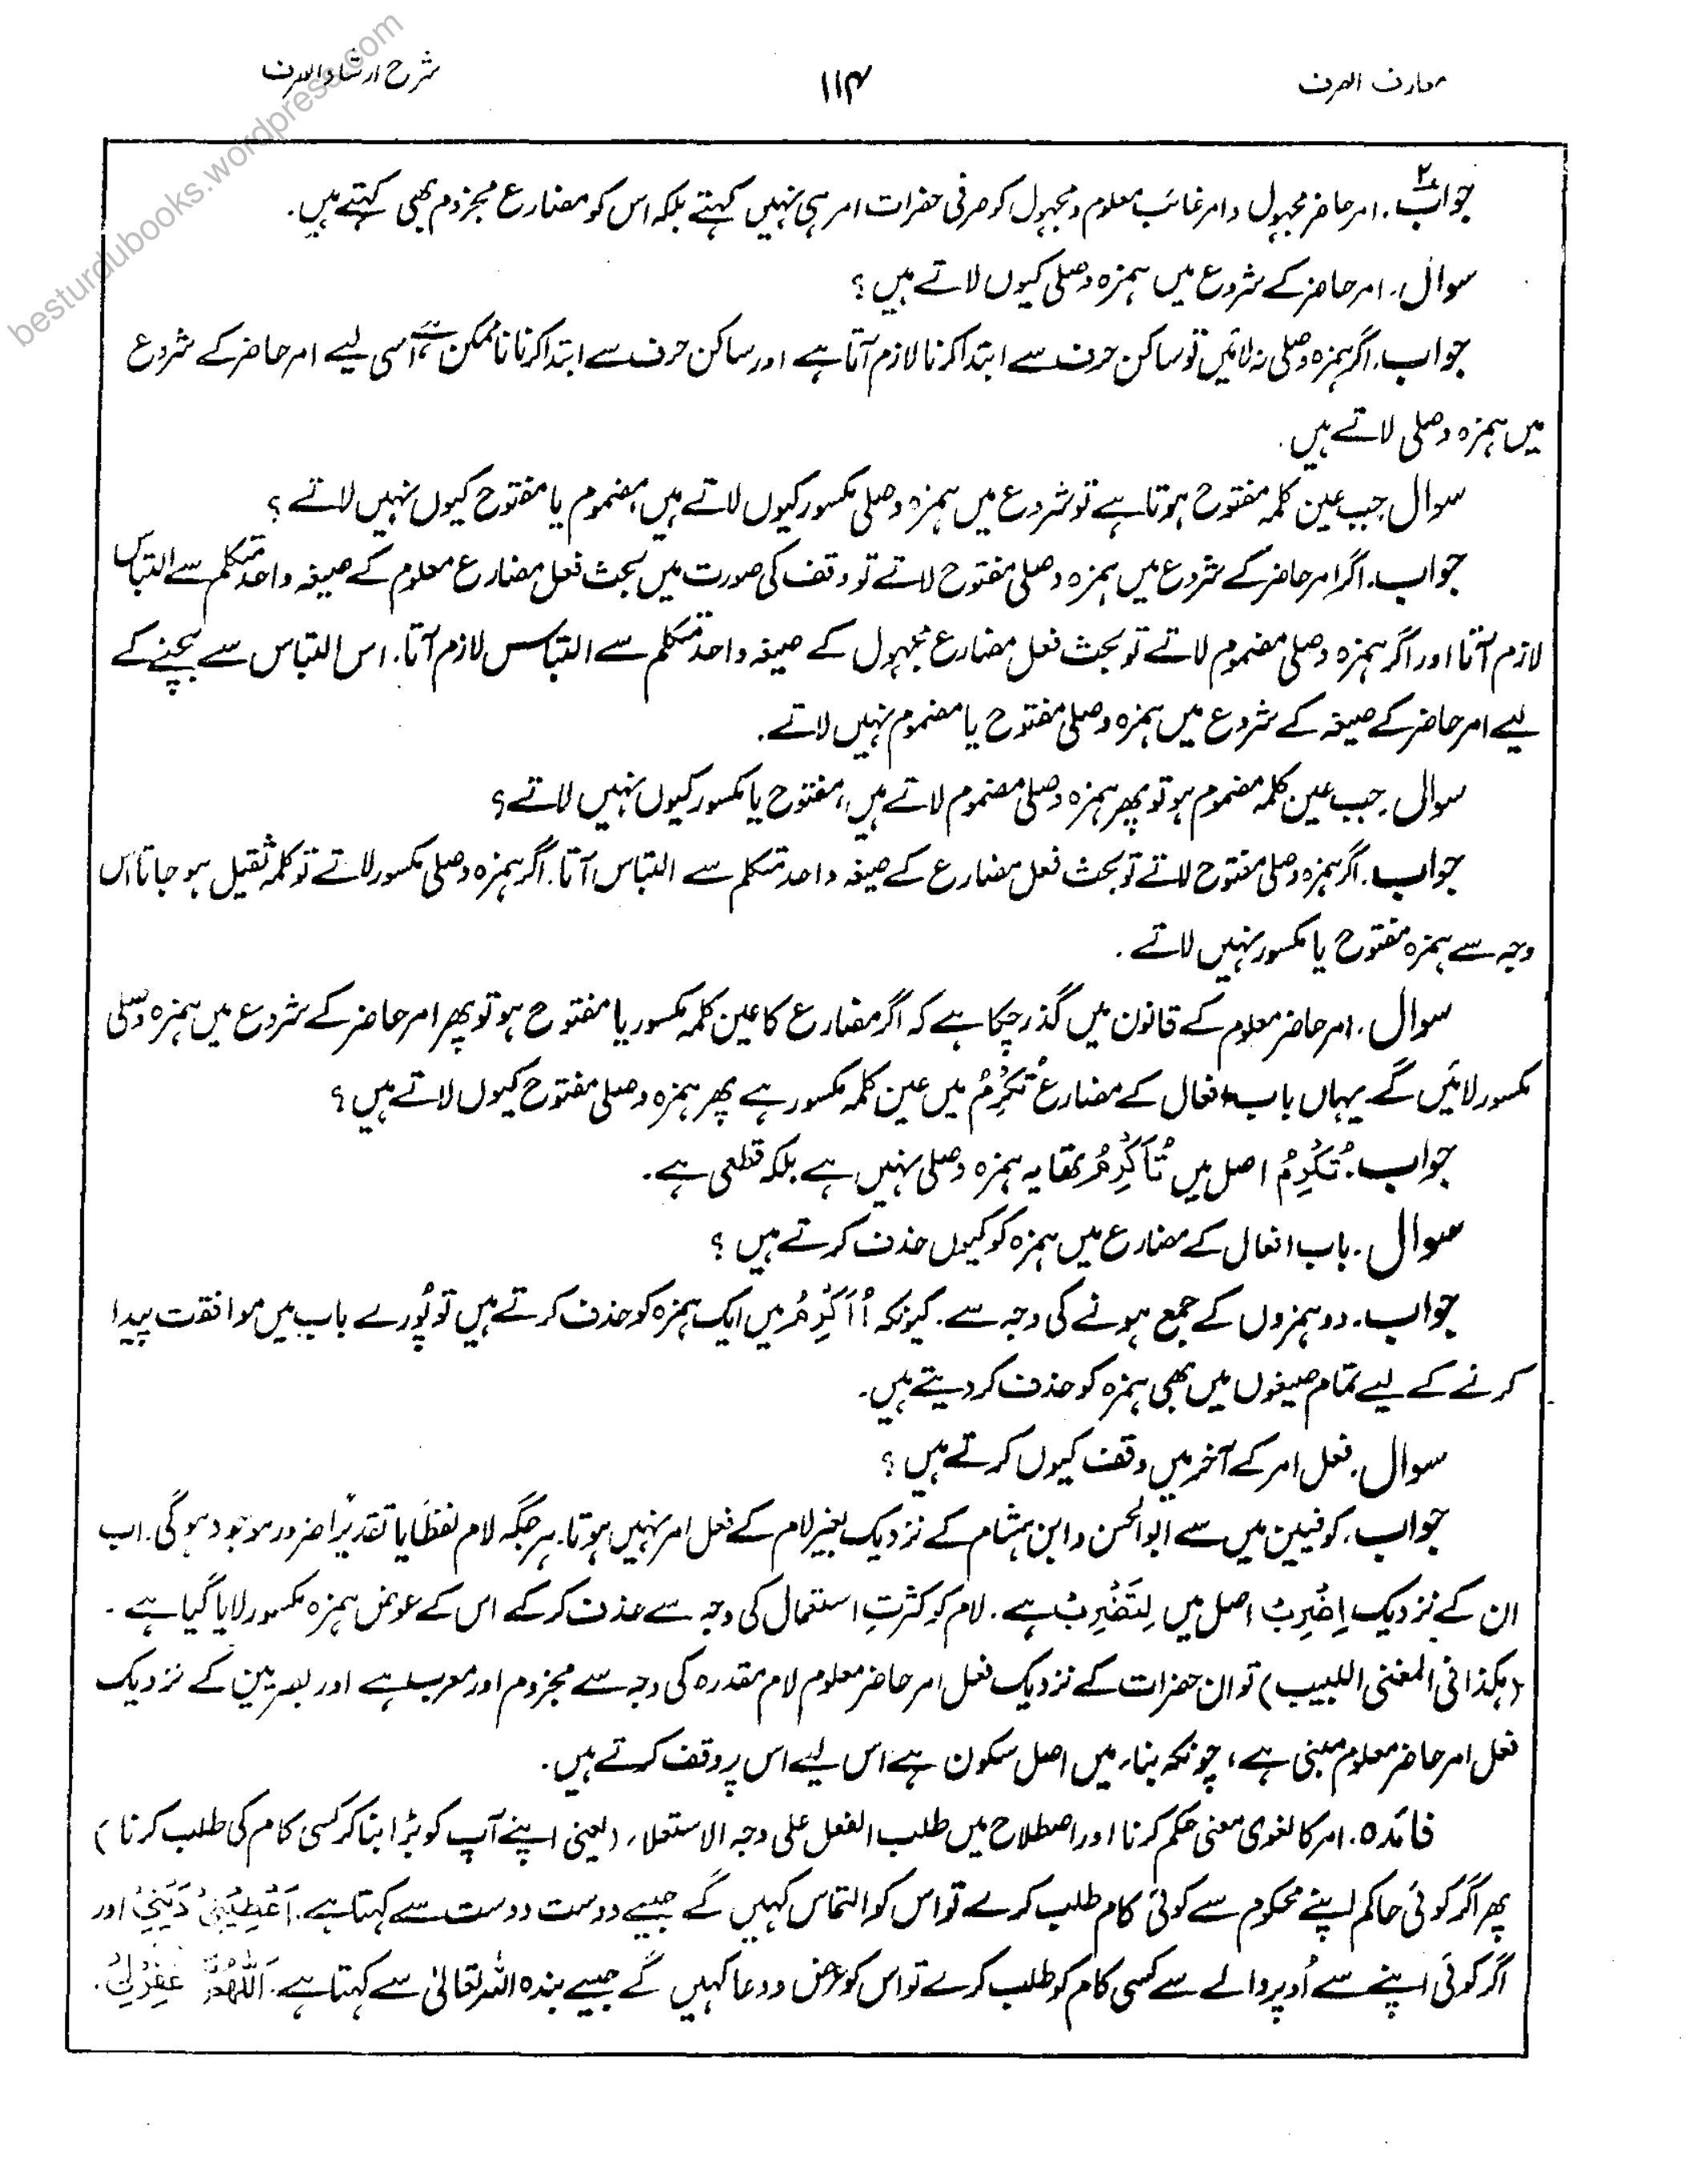 معارف الصرف
۱۱۴
شرح ارشاد الصرف
besturdubooks.wordpress.com
جواب۲۔ امر حاضر مجہول و امر غائب معلوم و مجہول کو صرفی حضرات امر ہی نہیں کہتے بلکہ اس کو مضارع مجزوم بھی کہتے ہیں۔
سوال۔ امر حاضر کے شروع میں ہمزہ وصلی کیوں لاتے ہیں؟
جواب۔ اگر ہمزہ وصلی نہ لائیں تو ساکن حرف سے ابتدا کرنا لازم آتا ہے اور ساکن حرف سے ابتدا کرنا ناممکن ہے، اسی لیے امر حاضر کے شروع
میں ہمزہ وصلی لاتے ہیں۔
سوال جب عین کلمہ مفتوح ہوتا ہے تو شروع میں ہمزہ وصلی مکسور کیوں لاتے ہیں، مضموم یا مفتوح کیوں نہیں لاتے؟
جواب۔ اگر امر حاضر کے شروع میں ہمزہ وصلی مفتوح لاتے تو وقف کی صورت میں بحث فعل مضارع معلوم کے صیغہ واحد متکلم سے التباس
لازم آتا اور اگر ہمزہ وصلی مضموم لاتے تو بحث فعل مضارع مجہول کے صیغہ واحد متکلم سے التباس لازم آتا۔ اس التباس سے بچنے کے
لیے امر حاضر کے صیغہ کے شروع میں ہمزہ وصلی مفتوح یا مضموم نہیں لاتے۔
سوال۔ جب عین کلمہ مضموم ہو تو پھر ہمزہ وصلی مضموم لاتے ہیں، مفتوح یا مکسور کیوں نہیں لاتے؟
جواب۔ اگر ہمزہ وصلی مفتوح لاتے تو بحث فعل مضارع کے صیغہ واحد متکلم سے التباس آتا۔ اگر ہمزہ وصلی مکسور لاتے تو کلمہ ثقیل ہو جاتا اس
وجہ سے ہمزہ مفتوح یا مکسور نہیں لاتے۔
سوال۔ امر حاضر معلوم کے قانون میں گذر چکا ہے کہ اگر مضارع کا عین کلمہ مکسور یا مفتوح ہو تو پھر امر حاضر کے شروع میں ہمزہ وصلی
مکسور لائیں گے یہاں باب افعال کے مضارع تُکْرِمُ میں عین کلمہ مکسور ہے پھر ہمزہ وصلی مفتوح کیوں لاتے ہیں؟
جواب۔ تُکْرِمُ اصل میں تُأَکْرِمُ تھا یہ ہمزہ وصلی نہیں ہے بلکہ قطعی ہے۔
سوال۔ باب افعال کے مضارع میں ہمزہ کو کیوں حذف کرتے ہیں؟
جواب۔ دو ہمزوں کے جمع ہونے کی وجہ سے۔ کیونکہ أُأَکْرِمُ میں ایک ہمزہ کو حذف کرتے ہیں تو پُورے باب میں موافقت پیدا
کرنے کے لیے تمام صیغوں میں بھی ہمزہ کو حذف کر دیتے ہیں۔
سوال۔ فعل امر کے آخر میں وقف کیوں کرتے ہیں؟
جواب۔ کوفیین میں سے ابوالحسن و ابن ہشام کے نزدیک بغیر لام کے فعل امر نہیں ہوتا۔ ہر جگہ لام لفظًا یا تقدیرًا ضرور موجود ہو گی۔ اب
ان کے نزدیک اِضْرِبْ اصل میں لِتَضْرِبْ ہے۔ لام کو کثرتِ استعمال کی وجہ سے حذف کر کے اس کے عوض ہمزہ مکسور لایا گیا ہے۔
(ہکذا فی المغنی اللبیب) تو ان حضرات کے نزدیک فعل امر حاضر معلوم لام مقدرہ کی وجہ سے مجزوم اور معرب ہے اور بصریین کے نزدیک
فعل امر حاضر معلوم مبنی ہے، چونکہ بناء میں اصل سکون ہے اس لیے اس پر وقف کرتے ہیں۔
فائدہ۔ امر کا لغوی معنی حکم کرنا اور اصطلاح میں طلب الفعل علی وجہ الاستعلاء (یعنی اپنے آپ کو بڑا بنا کر کسی کام کی طلب کرنا)
پھر اگر کوئی حاکم اپنے محکوم سے کوئی کام طلب کرے تو اس کو التماس کہیں گے جیسے دوست دوست سے کہتا ہے۔ اَعْطِیْنِیْ دَیْنِیْ اور
اگر کوئی اپنے سے اُوپر والے سے کسی کام کو طلب کرے تو اس کو عرض و دعا کہیں گے جیسے بندہ اللہ تعالیٰ سے کہتا ہے۔ اَللّٰھُمَّ غْفِرْلِیْ۔